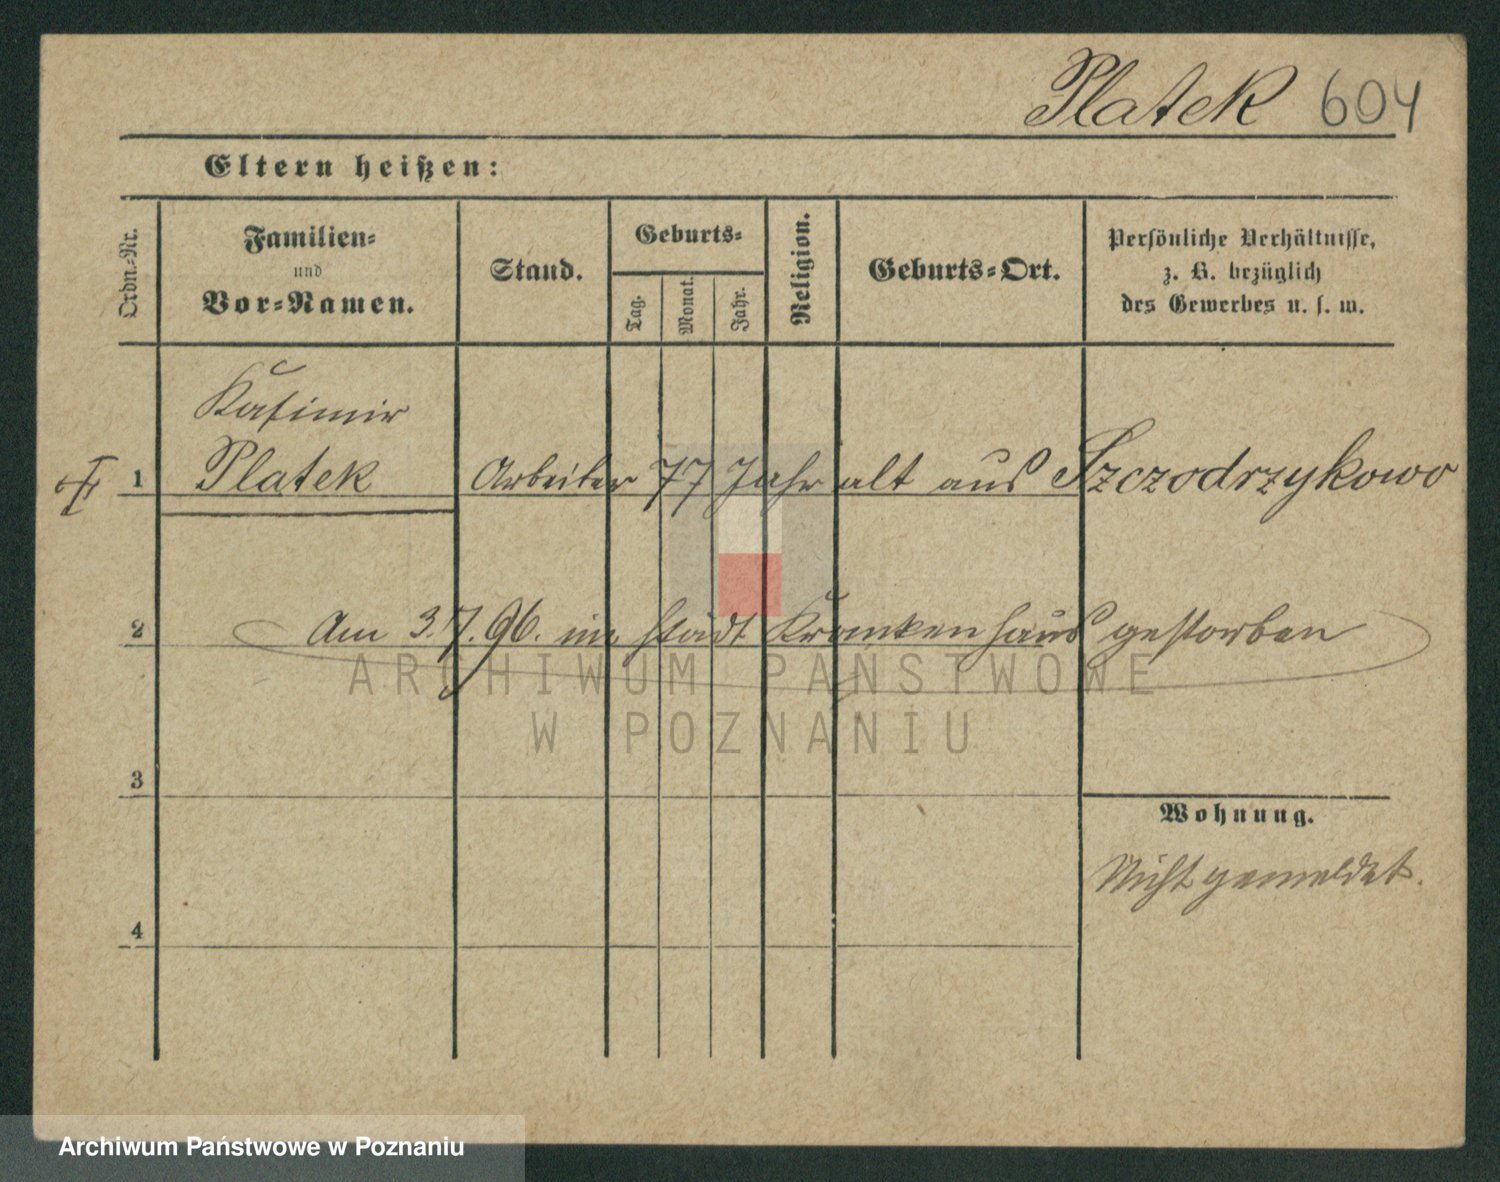 Platek 604
Eltern heißen:
Ordn.-Nr.
Familien-
und
Vor-Namen.
Stand.
Geburts-
Tag.
Monat.
Jahr.
Religion.
Geburts-Ort.
Persönliche Verhältnisse,
z. B. bezüglich
des Gewerbes u. s. w.
Kasimir
1 Platek Arbeiter 77 Jahr alt aus Szczodrzykowo
2 Am 3.7.96. im städt Krankenhaus gestorben
ARCHIWUM PAŃSTWOWE
W POZNANIU
3
Wohnung.
Nicht gemeldet.
4
Archiwum Państwowe w Poznaniu